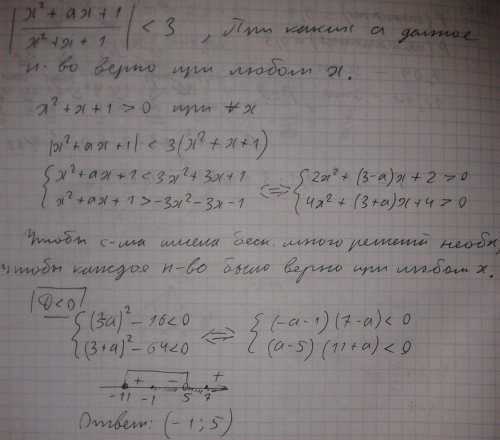 |x² + ax + 1 / x² + x + 1| < 3 , При каких a данное
н-во верно при любом x.
x² + x + 1 > 0 при ∀x
|x² + ax + 1| < 3(x² + x + 1)
{ x² + ax + 1 < 3x² + 3x + 1 <=> { 2x² + (3-a)x + 2 > 0
x² + ax + 1 > -3x² - 3x - 1 4x² + (3+a)x + 4 > 0
Чтобы с-ма имела беск. много решений необх,
чтобы каждое н-во было верно при любом x.
D<0
{ (3-a)² - 16 < 0 <=> { (-a-1)(7-a) < 0
(3+a)² - 64 < 0 (a-5)(11+a) < 0
+ - +
-11 -1 5 7
Ответ: (-1; 5)